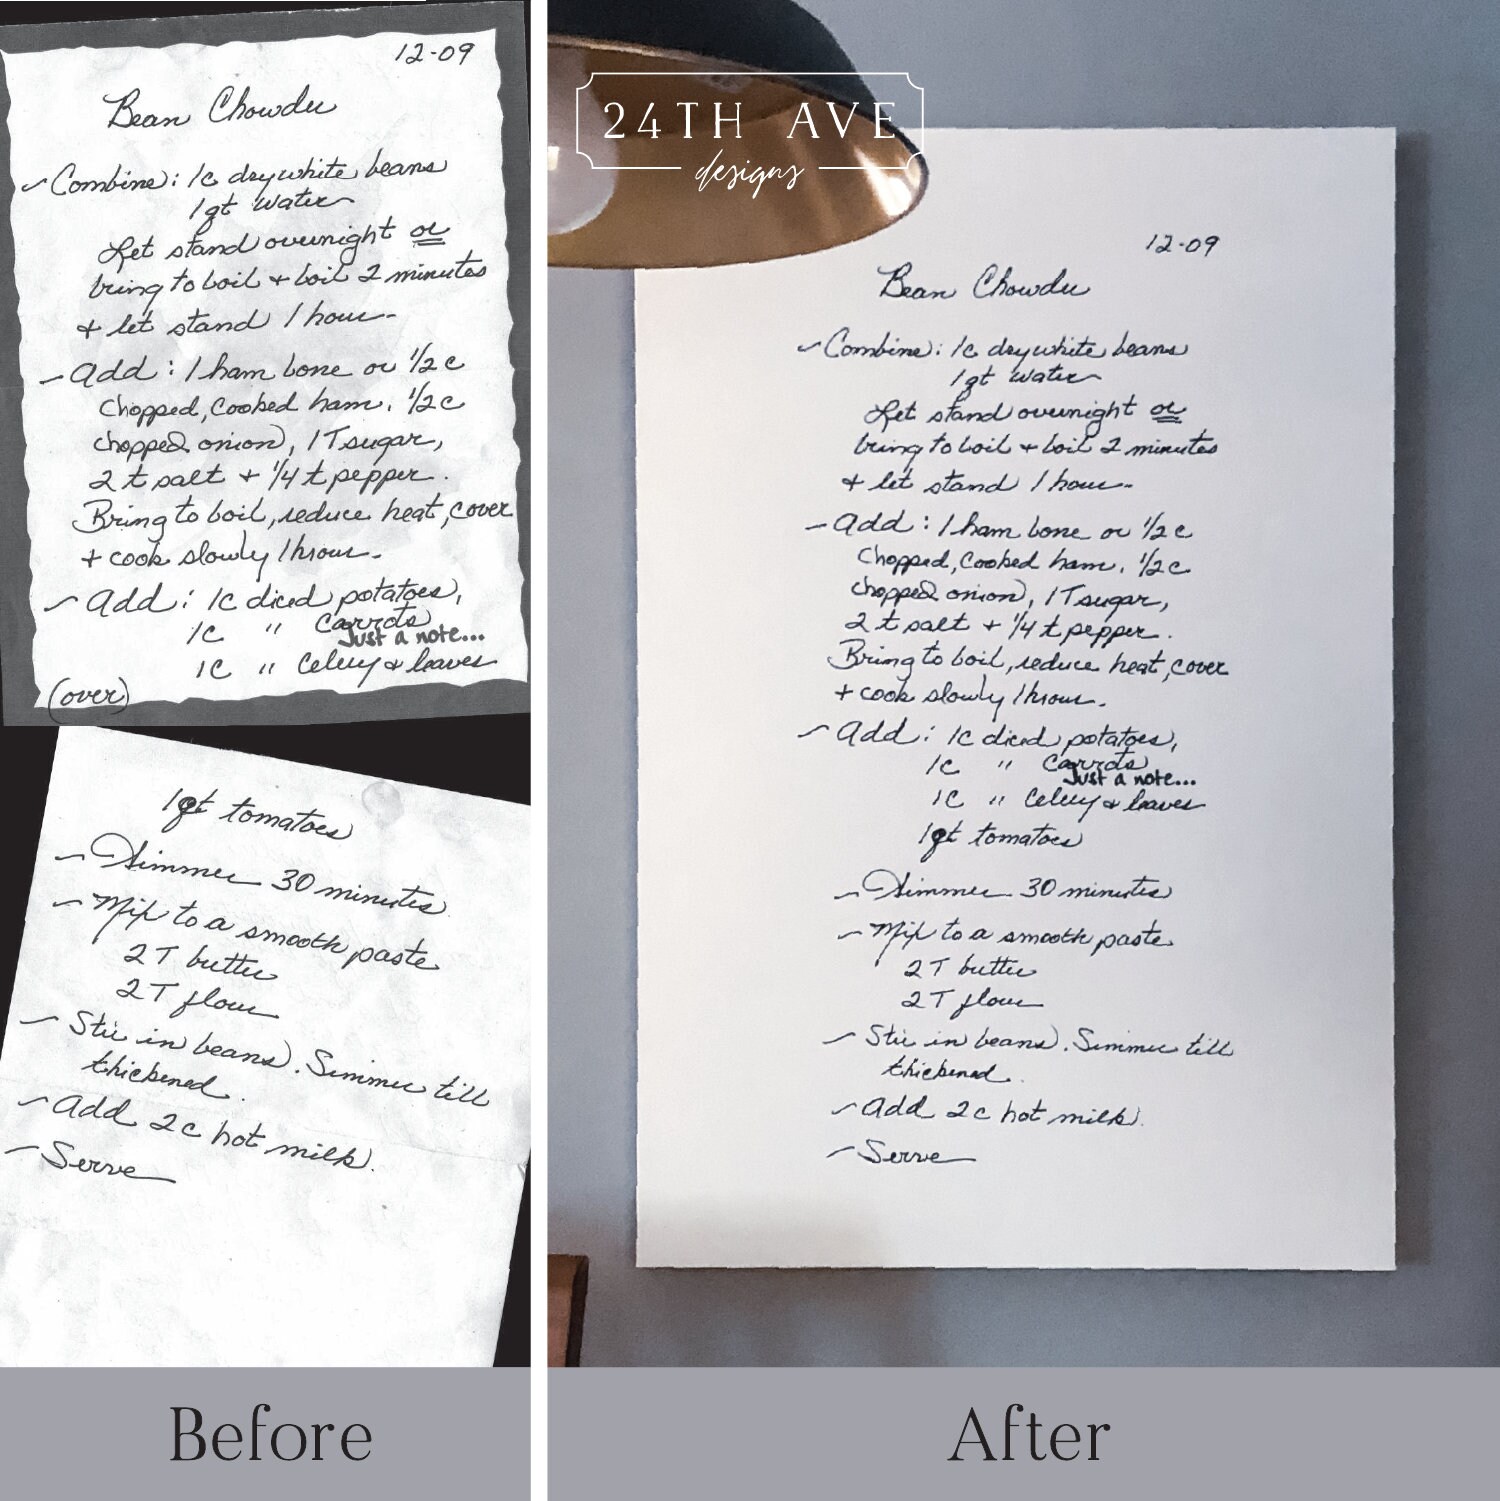 12-09
Bean Chowder
- Combine: 1c dry white beans
1 qt water
Let stand overnight or
bring to boil + boil 2 minutes
+ let stand 1 hour.
- Add: 1 ham bone or 1/2 c
chopped, cooked ham, 1/2 c
chopped onion, 1 T sugar,
2 t salt + 1/4 t pepper.
Bring to boil, reduce heat, cover
+ cook slowly 1 hour.
- Add: 1c diced potatoes,
1c " carrots
Just a note...
1c " celery & leaves
(over)
1 qt tomatoes
- Simmer 30 minutes
- Mix to a smooth paste
2 T butter
2 T flour
- Stir in beans. Simmer till
thickened.
- Add 2c hot milk.
- Serve
Before
24TH AVE
designs
12-09
Bean Chowder
- Combine: 1c dry white beans
1 qt water
Let stand overnight or
bring to boil + boil 2 minutes
+ let stand 1 hour.
- Add: 1 ham bone or 1/2 c
chopped, cooked ham, 1/2 c
chopped onion, 1 T sugar,
2 t salt + 1/4 t pepper.
Bring to boil, reduce heat, cover
+ cook slowly 1 hour.
- Add: 1c diced potatoes,
1c " carrots
Just a note...
1c " celery & leaves
1 qt tomatoes
- Simmer 30 minutes
- Mix to a smooth paste
2 T butter
2 T flour
- Stir in beans. Simmer till
thickened.
- Add 2c hot milk.
- Serve
After